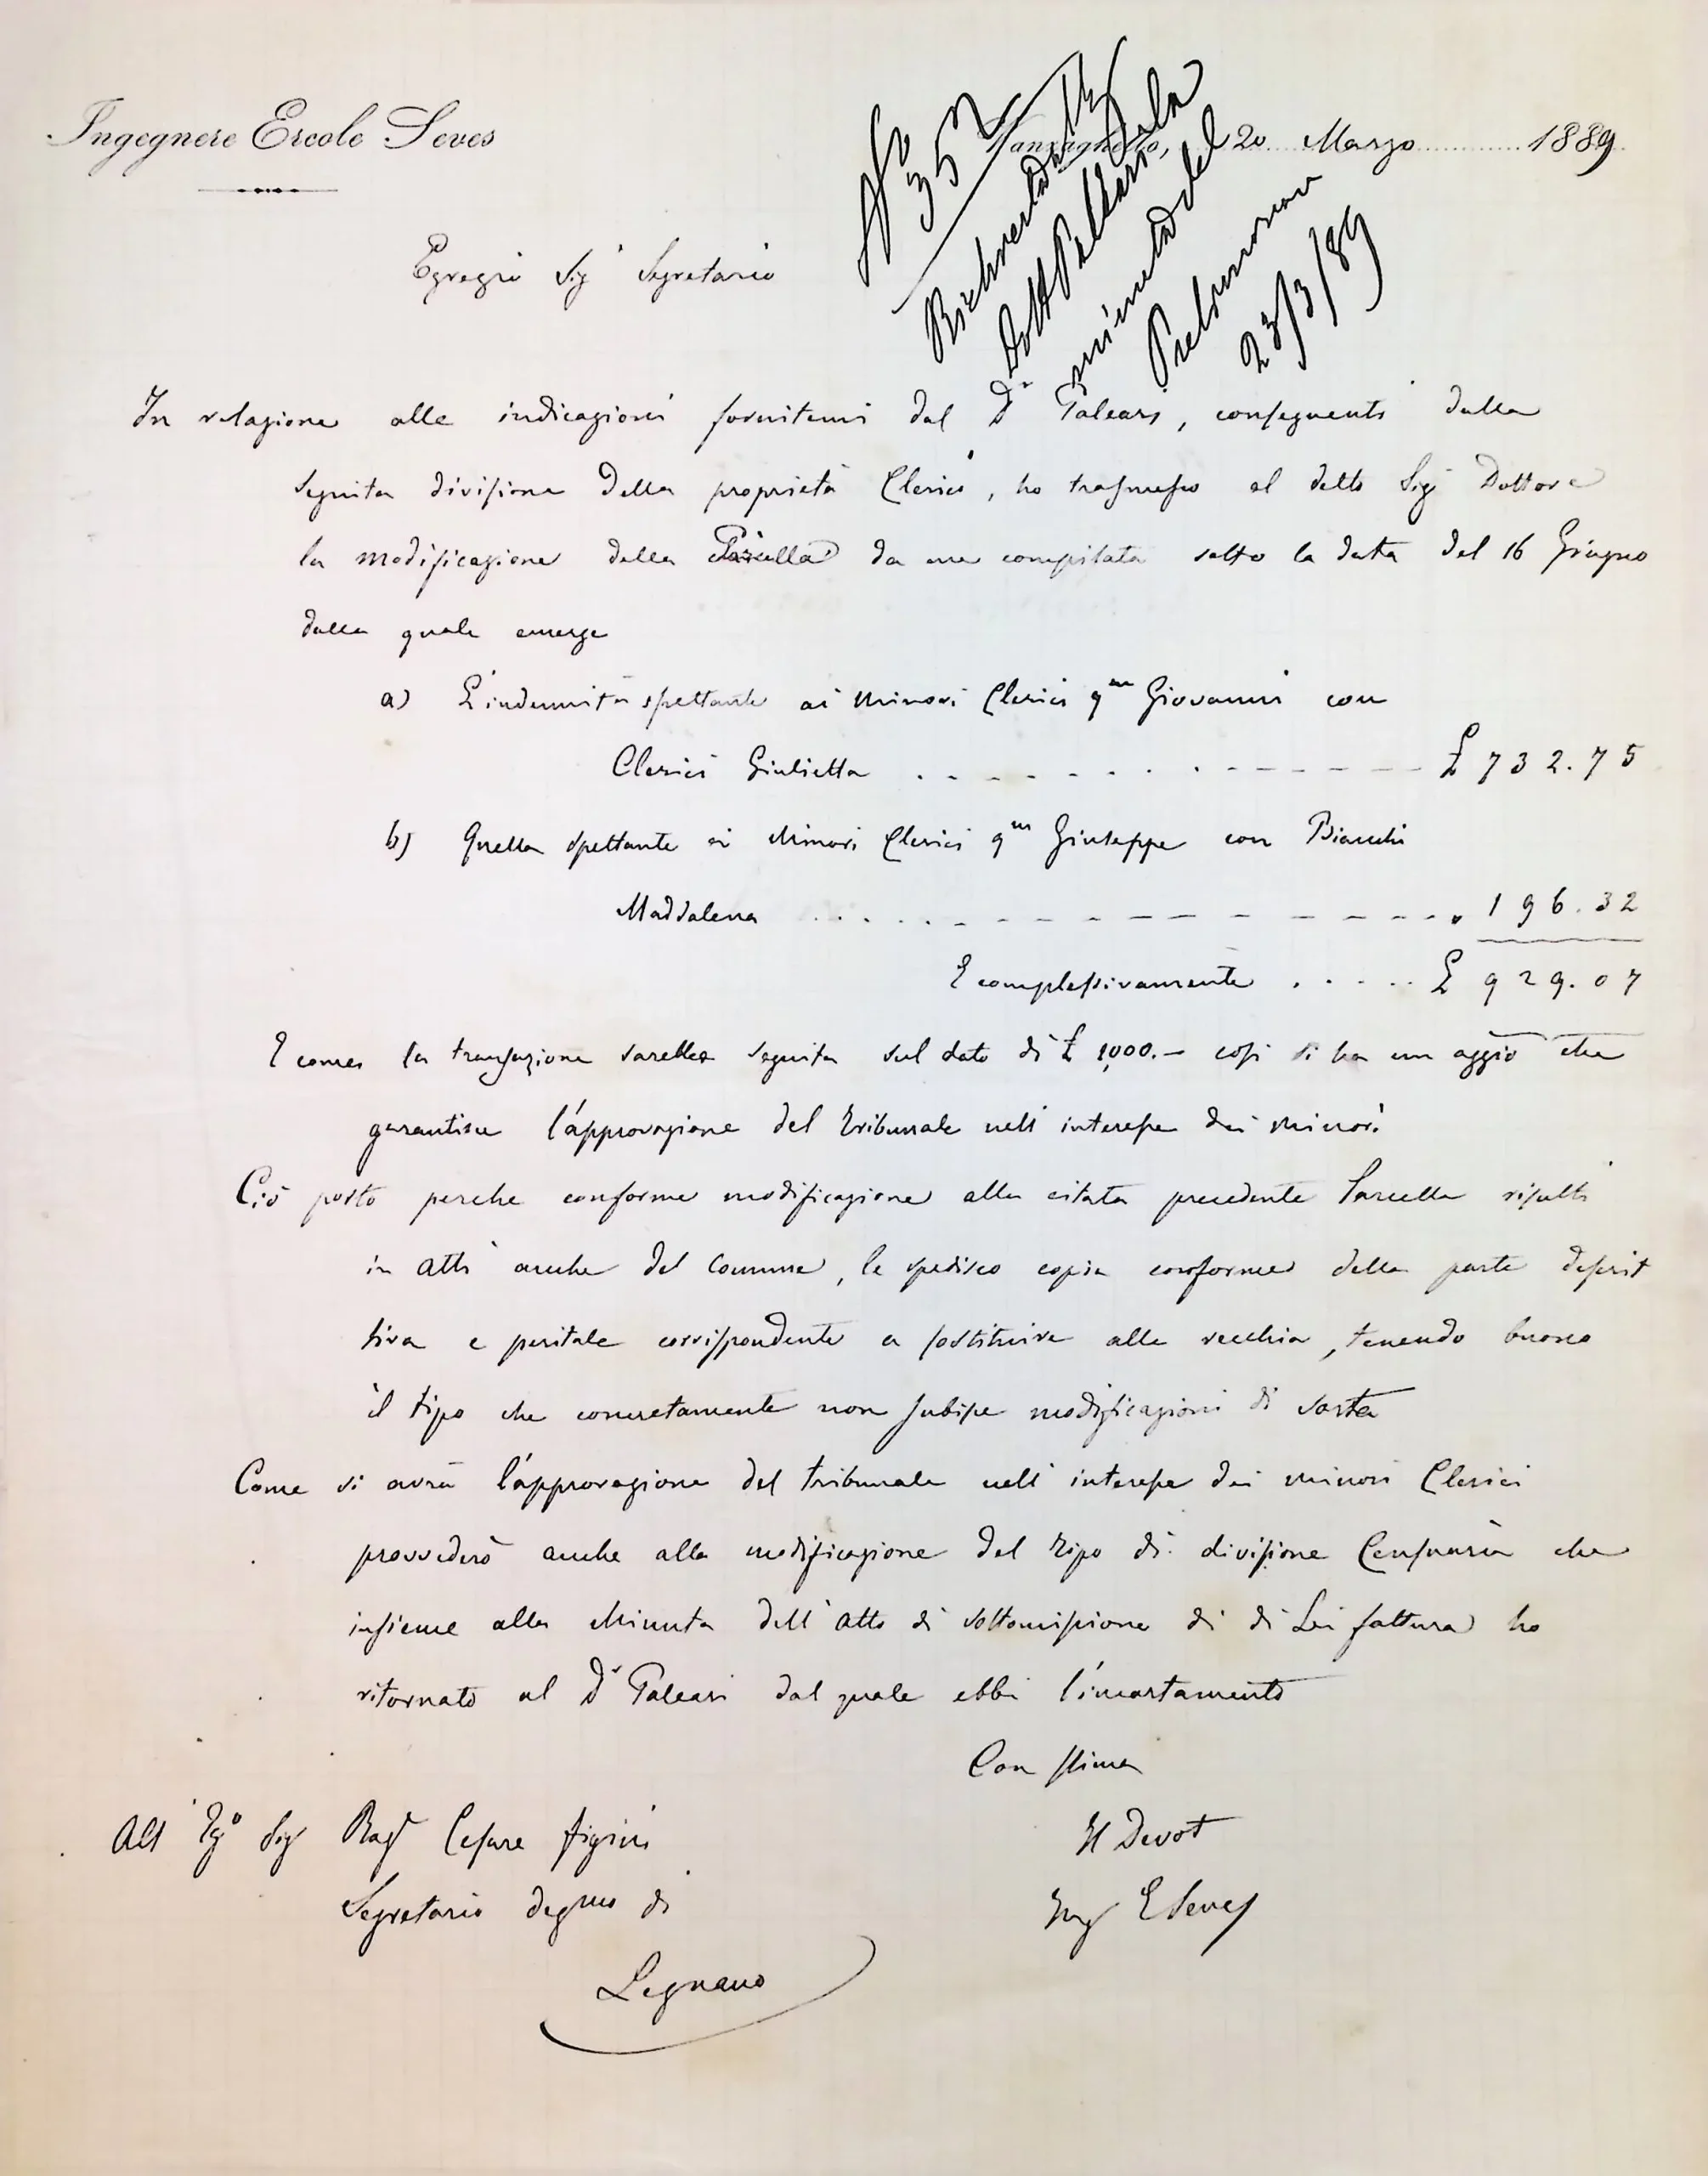 Ingegnere Ercole Seves
Vanzaghello, 20 Marzo 1889
N° 352
Dott
del
23/3/89
Egregio Sigr Segretario
In relazione alle indicazioni fornitemi dal Dr Galeari, conseguenti dalla
seguita divisione della proprietà Clerici, ho trasmesso al detto Sigr Dottore
la modificazione della Parcella da me compilata sotto la data del 16 Giugno
dalla quale emerge
a) L'indennità spettante ai Minori Clerici qm Giovanni con
Clerici Giulietta £ 732.75
b) Quella spettante ai Minori Clerici qm Giuseppe con Bianchi
Maddalena " 196.32
E complessivamente £ 929.07
E come la transazione sarebbe seguita sul dato di £ 1,000.- così si ha un aggio che
garantisce l'approvazione del tribunale nell'interesse dei minori
Ciò posto perche conforme modificazione alla citata precedente Parcella risulti
in atti anche del Comune, le spedisco copia conforme della parte descrit
tiva e peritale corrispondente a sostituire alla vecchia, tenendo buono
il tipo che concretamente non subisce modificazioni di sorta
Come si avrà l'approvazione del tribunale nell'interesse dei minori Clerici
provvederò anche alla modificazione del tipo di divisione Censuaria che
insieme alla Minuta dell'atto di sottomissione di di Lei fattura ho
ritornato al Dr Galeari dal quale ebbi l'incartamento
Con stima
Il Devot
Ing E Seves
All' Egº Sigr Ragr Cesare Figini
Segretario degmo di
Legnano